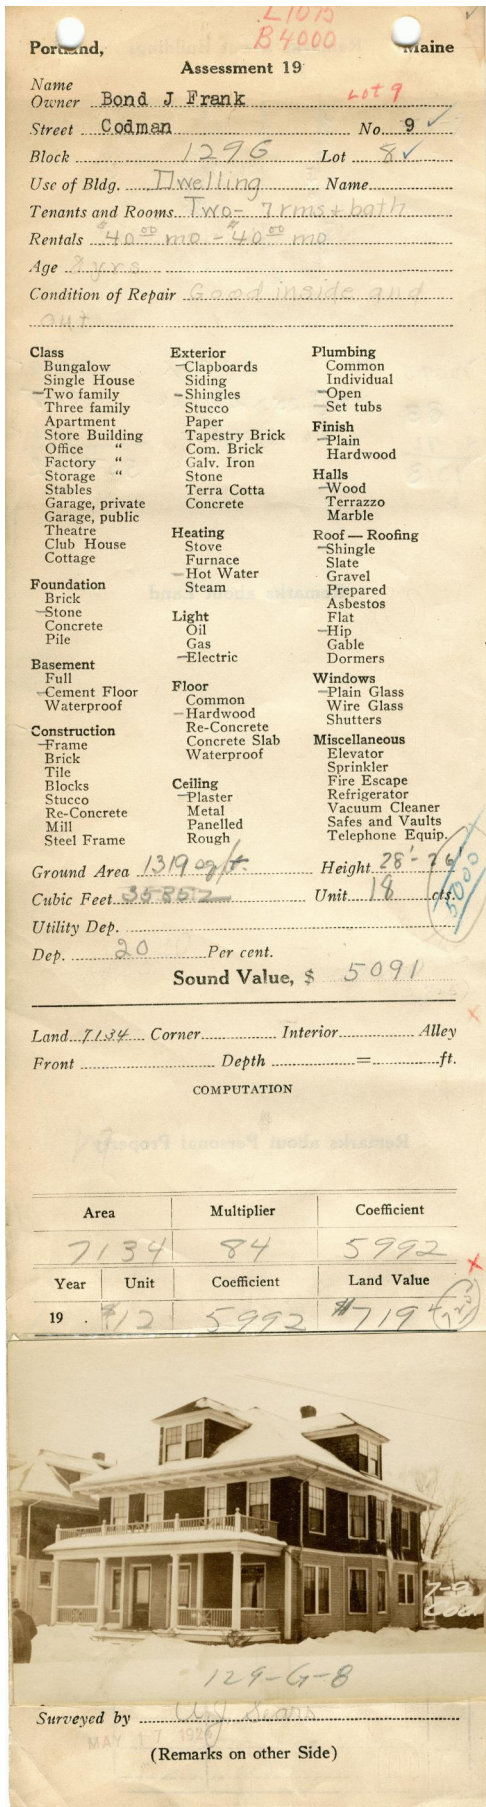 L1075
B4000
Portland, Maine
Assessment 19
Name
Owner Bond J Frank Lot 9
Street Codman No. 9
Block 129G Lot 8
Use of Bldg. Dwelling Name
Tenants and Rooms Two - 7 rms + bath
Rentals $40.00 mo - $40.00 mo
Age 8 yrs
Condition of Repair Good inside and
out
Class
Bungalow
Single House
Two family
Three family
Apartment
Store Building
Office "
Factory "
Storage "
Stables
Garage, private
Garage, public
Theatre
Club House
Cottage
Foundation
Brick
Stone
Concrete
Pile
Basement
Full
Cement Floor
Waterproof
Construction
Frame
Brick
Tile
Blocks
Stucco
Re-Concrete
Mill
Steel Frame
Exterior
Clapboards
Siding
Shingles
Stucco
Paper
Tapestry Brick
Com. Brick
Galv. Iron
Stone
Terra Cotta
Concrete
Heating
Stove
Furnace
Hot Water
Steam
Light
Oil
Gas
Electric
Floor
Common
Hardwood
Re-Concrete
Concrete Slab
Waterproof
Ceiling
Plaster
Metal
Panelled
Rough
Plumbing
Common
Individual
Open
Set tubs
Finish
Plain
Hardwood
Halls
Wood
Terrazzo
Marble
Roof — Roofing
Shingle
Slate
Gravel
Prepared
Asbestos
Flat
Hip
Gable
Dormers
Windows
Plain Glass
Wire Glass
Shutters
Miscellaneous
Elevator
Sprinkler
Fire Escape
Refrigerator
Vacuum Cleaner
Safes and Vaults
Telephone Equip.
Ground Area 1319 sq ft. Height 28' - 26'
Cubic Feet 35852 Unit 18 cts.
5000
Utility Dep.
Dep. 20 Per cent.
Sound Value, $ 5091
Land 7134 Corner Interior Alley
Front Depth = ft.
COMPUTATION
Remarks about Personal Property
Area Multiplier Coefficient
7134 84 5992
Year Unit Coefficient Land Value
19 . $12 5992 $719
7-9
129-G-8
Surveyed by Sears
MAY 17
(Remarks on other Side)